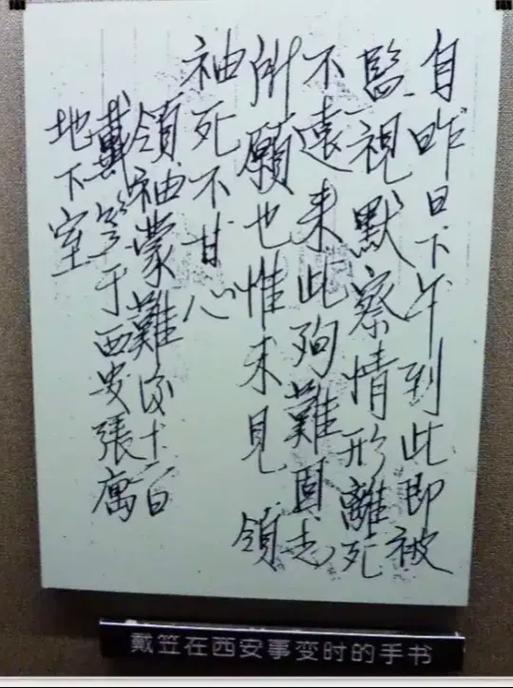 自昨日下午到此即被
監視默察情形離死
不遠來此殉難固志
所願也惟未見 領
袖死不甘心
領袖蒙難後十二日
戴笠于西安張寓
地下室
戴笠在西安事变时的手书